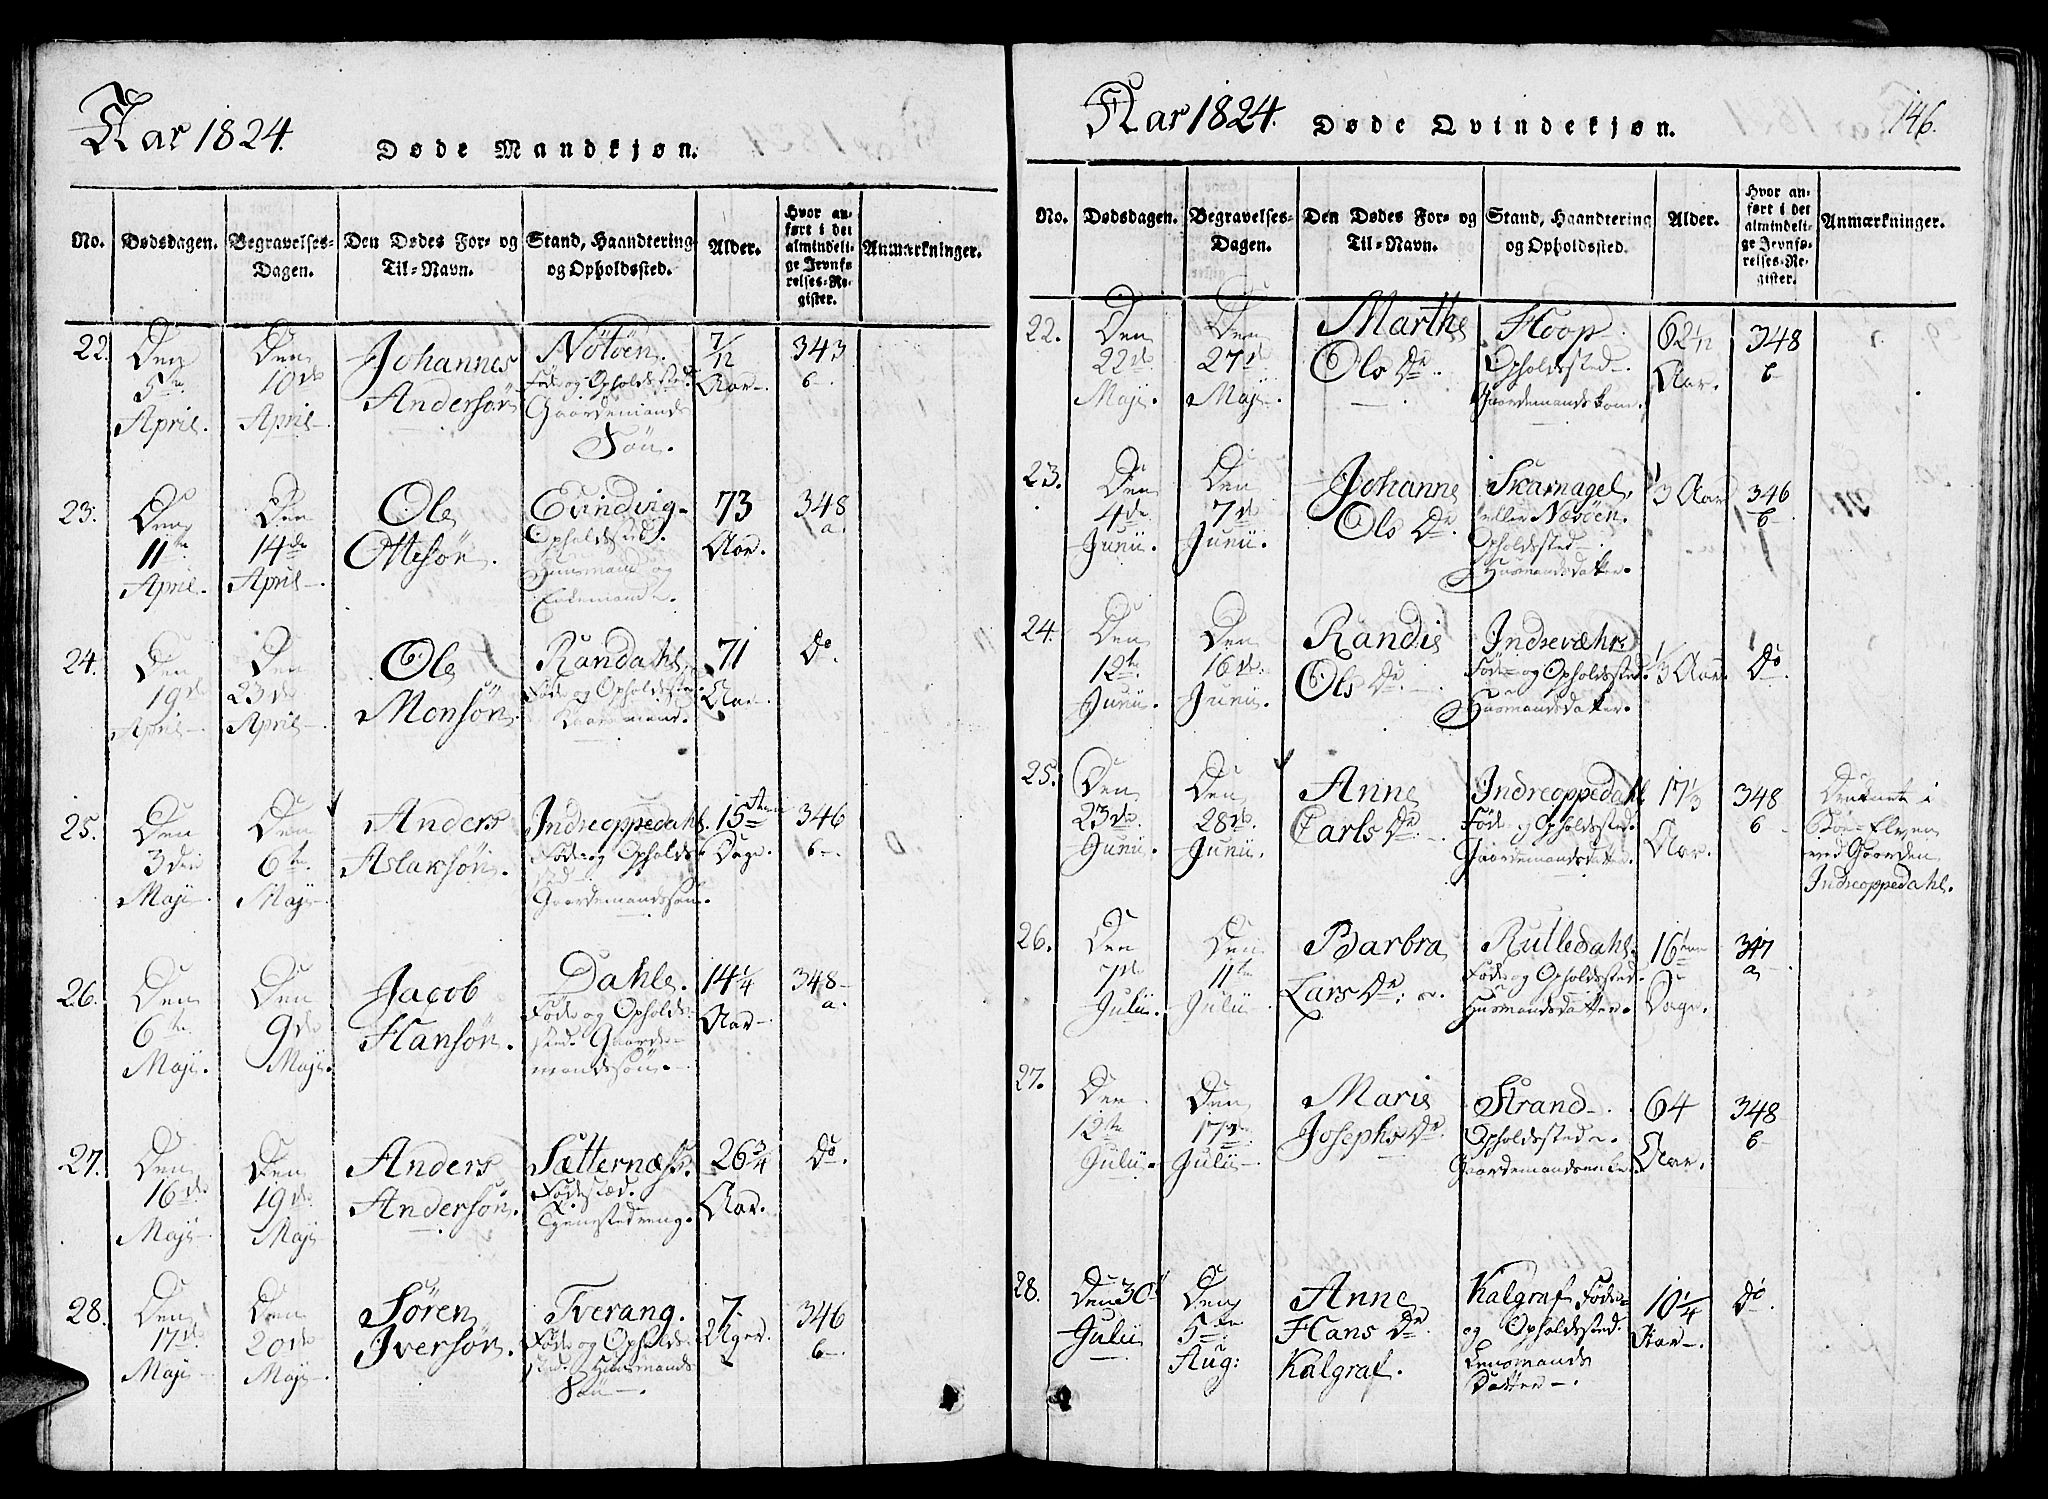 Aar 1824.
Døde Mandkjøn.
No.
Dødsdagen.
Begravelses-
Dagen.
Den Dødes For- og
Til-Navn.
Stand, Haandtering
og Opholdssted.
Alder.
Hvor an-
ført i det
almindeli-
ge Jevnfø-
relses-Re-
gister.
Anmærkninger.
22.
Den
5te
April.
Den
10de
April.
Johannes
Andersøn
Nötöen.
Føde og Opholdssted.
Gaardemands
Søn.
7/12
Aar.
343
b.
23.
Den
11te
April.
Den
14de
April.
Ole
Ottesøn.
Evindvig
Opholdssted.
Huusmand og
Enkemand.
73
Aar.
348
a.
24.
Den
19de
April
Den
23de
April
Ole
Monsøn.
Randahl,
Føde og Opholdssted.
Gaardemand.
71
Aar.
Do
25.
Den
3die
Maji
Den
6te
Maji.
Anders
Aslaksøn.
Indreoppedahl.
Føde og Opholds-
sted
Gaardemandssøn.
15
Dage.
346
b.
26.
Den
6te
Maji.
Den
9de
Maji.
Jacob
Hansøn.
Dahle.
Føde og Opholds-
sted. Gaarde-
mandssøn.
14 1/4
Aar.
348
a.
27.
Den
16de
Maji
Den
19de
Maji
Anders
Andersøn.
Sætternæss.
Fødestæd.
Tjenestedreng.
26 3/4
Aar.
Do.
28.
Den
17de
Maji
Den
20de
Maji.
Søren
Iversøn.
Tverang.
Føde og Opholds-
sted. Huusmands
Søn.
7.
Uger.
346
b.
Aar 1824.
Døde Qvindekjøn.
146.
No.
Dødsdagen.
Begravelses-
Dagen.
Den Dødes For- og
Til-Navn.
Stand, Haandtering
og Opholdssted.
Alder.
Hvor an-
ført i det
almindeli-
ge Jevnfø-
relses-Re-
gister.
Anmærkninger.
22.
Den
22de
Maji.
Den
27de
Maji.
Marthe
Ols Dr.
Hoop
Opholdssted.
Gaardemandskone.
62
Aar.
348
b
23.
Den
4de
Junii.
Den
7de
Junii.
Johanne
Ols Dr.
Skarnagel,
eller Næsøen.
Opholdssted
Husmandsdatter.
1/3 Aar
346
b.
24.
Den
12te
Junii.
Den
16de
Junii.
Randi
Ols Dr.
Indreværhr
Føde- og Opholdssted.
Husmandsdatter.
1/3 Aar.
Do
25.
Den
23de
Junii.
Den
28de
Junii.
Anne
Carls Dr.
Indreoppedahl
Føde og Opholdssted.
Gaardemandsdatter.
17 1/3
Aar.
348
b
Druknet i
Elven
ved Gaarden
Indreoppedahl.
26.
Den
7de
Julii.
Den
11te
Julii
Barbra
Lars Dr.
Rutledahl.
Føde og Opholdssted
Husmandsdatter.
16
Dage.
347
a
27.
Den
12te
Julii.
Den
17de
Julii.
Marie
Josephs Dr.
Strand
Opholdssted
Gaardemandsenke.
64
Aar.
348
b
28.
Den 30
Julii
Den
5te
Aug:
Anne
Hans Dr.
Kalgraf.
Kalgraf Føde-
og Opholdssted.
Lensmands
Datter.
10 1/4
Aar.
Do.